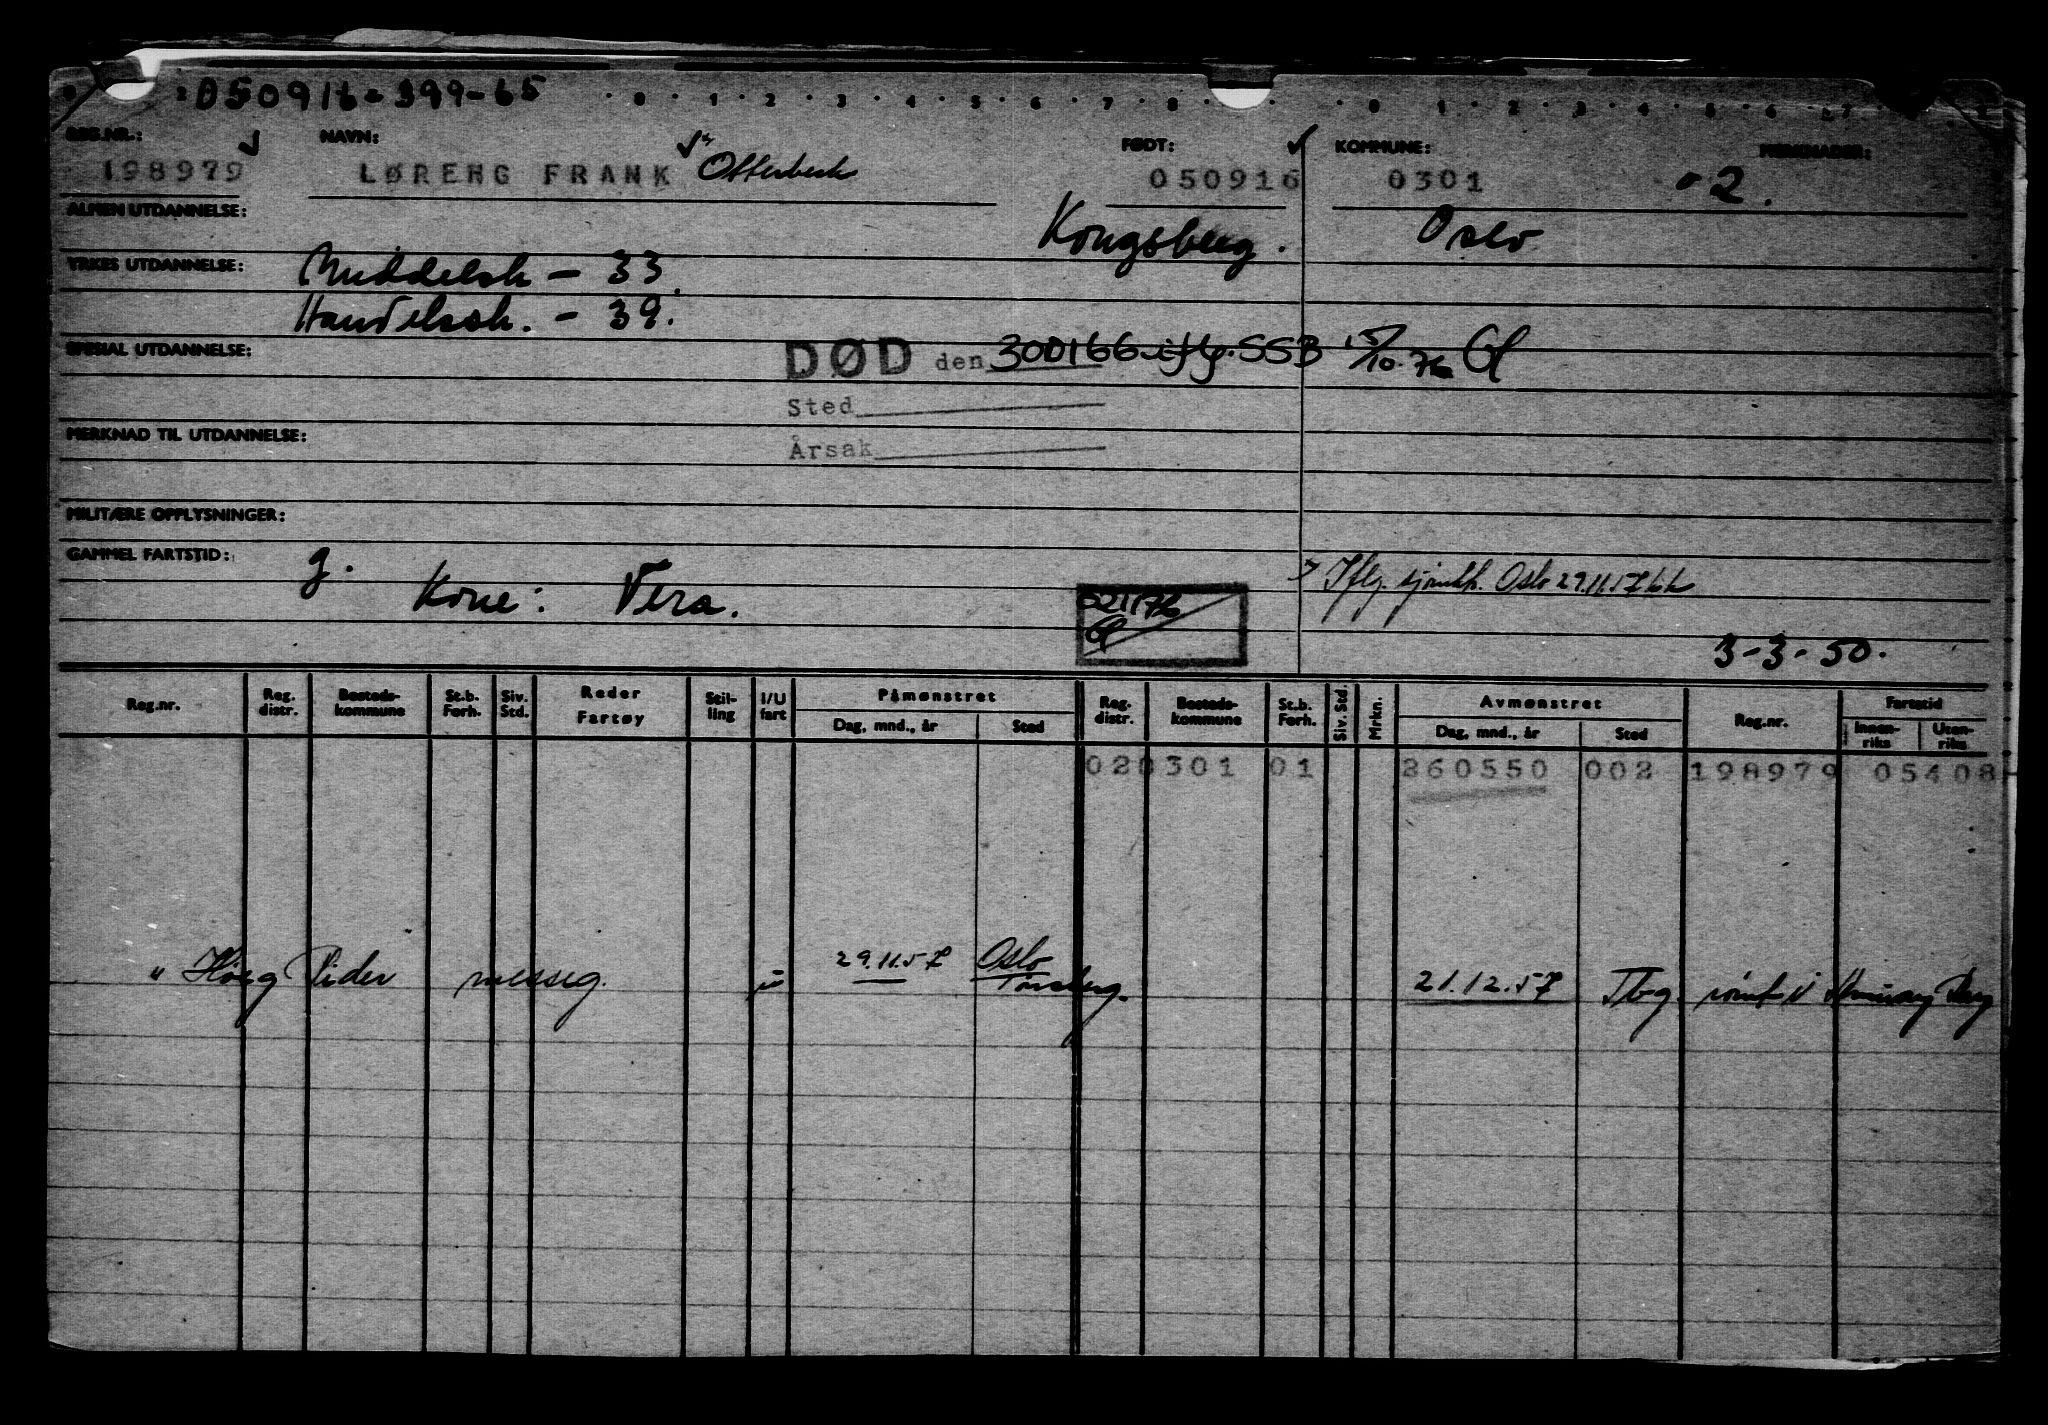 050916-399-65
0 · 1 · 2 · 3 · 4 · 5 · 6 · 7 · 8 · 0 1 · 2 · 3 · 4 · 5 · 6 · 7
REG.NR.: NAVN: FØDT: KOMMUNE: MERKNADER:
198979 LØRENG FRANK Otterbech 050916 0301 - 2.
ALMEN UTDANNELSE: Kongsberg. Oslo
YRKES UTDANNELSE: Middelsk - 33.
Handelssk. - 39.
SPESIAL UTDANNELSE: DØD den 300166 iflg. SSB 15/10.76
Sted
MERKNAD TIL UTDANNELSE:
Årsak
MILITÆRE OPPLYSNINGER:
GAMMEL FARTSTID: g. Iflg. Oslo 29.11.57
Kone: Vera.
3-3-50.
Reg.nr. Reg. distr. Bosteds-kommune St.b. Forh. Siv. Std. Reder Fartøy Stil-ling I/U fart Påmønstret Dag, mnd., år Sted Reg. distr. Bosteds-kommune St.b. Forh. Siv. Std. Mrkn. Avmønstret Dag, mnd., år Sted Reg.nr. Fartstid Innen-riks Uten-riks
020301 01 260550 002 198979 05408
" Höeg Rider messeg. u 29.11.57 Oslo
Tønsberg. 21.12.57 Tbg.